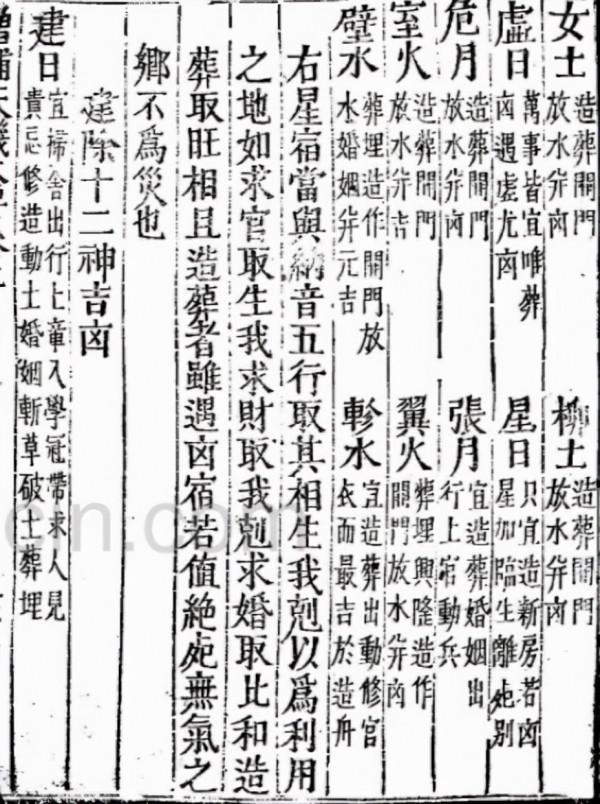 女土 造葬開門放水并凶 柳土 造葬開門放水并凶
虛日 萬事皆宜唯葬凶遇虛尤凶 星日 只宜造新房若凶星加臨生離死別
危月 造葬開門放水并凶 張月 宜造葬婚姻出行上官動兵
室火 造葬開門放水并吉 翼火 葬埋興隆造作開門放水并凶
壁水 葬埋造作開門放水婚姻并元吉 軫水 宜造葬出動修官衣而最吉於造舟
右星宿當與納音五行取其相生我剋以爲利用
之地如求官取生我求財取我剋求婚取比和造
葬取旺相且造葬者雖遇凶宿若值絶死無氣之
鄉不爲災也
建除十二神吉凶
建日 宜掃舍出行上章入學冠帶求人見貴忌修造動土婚姻斬草破土葬埋